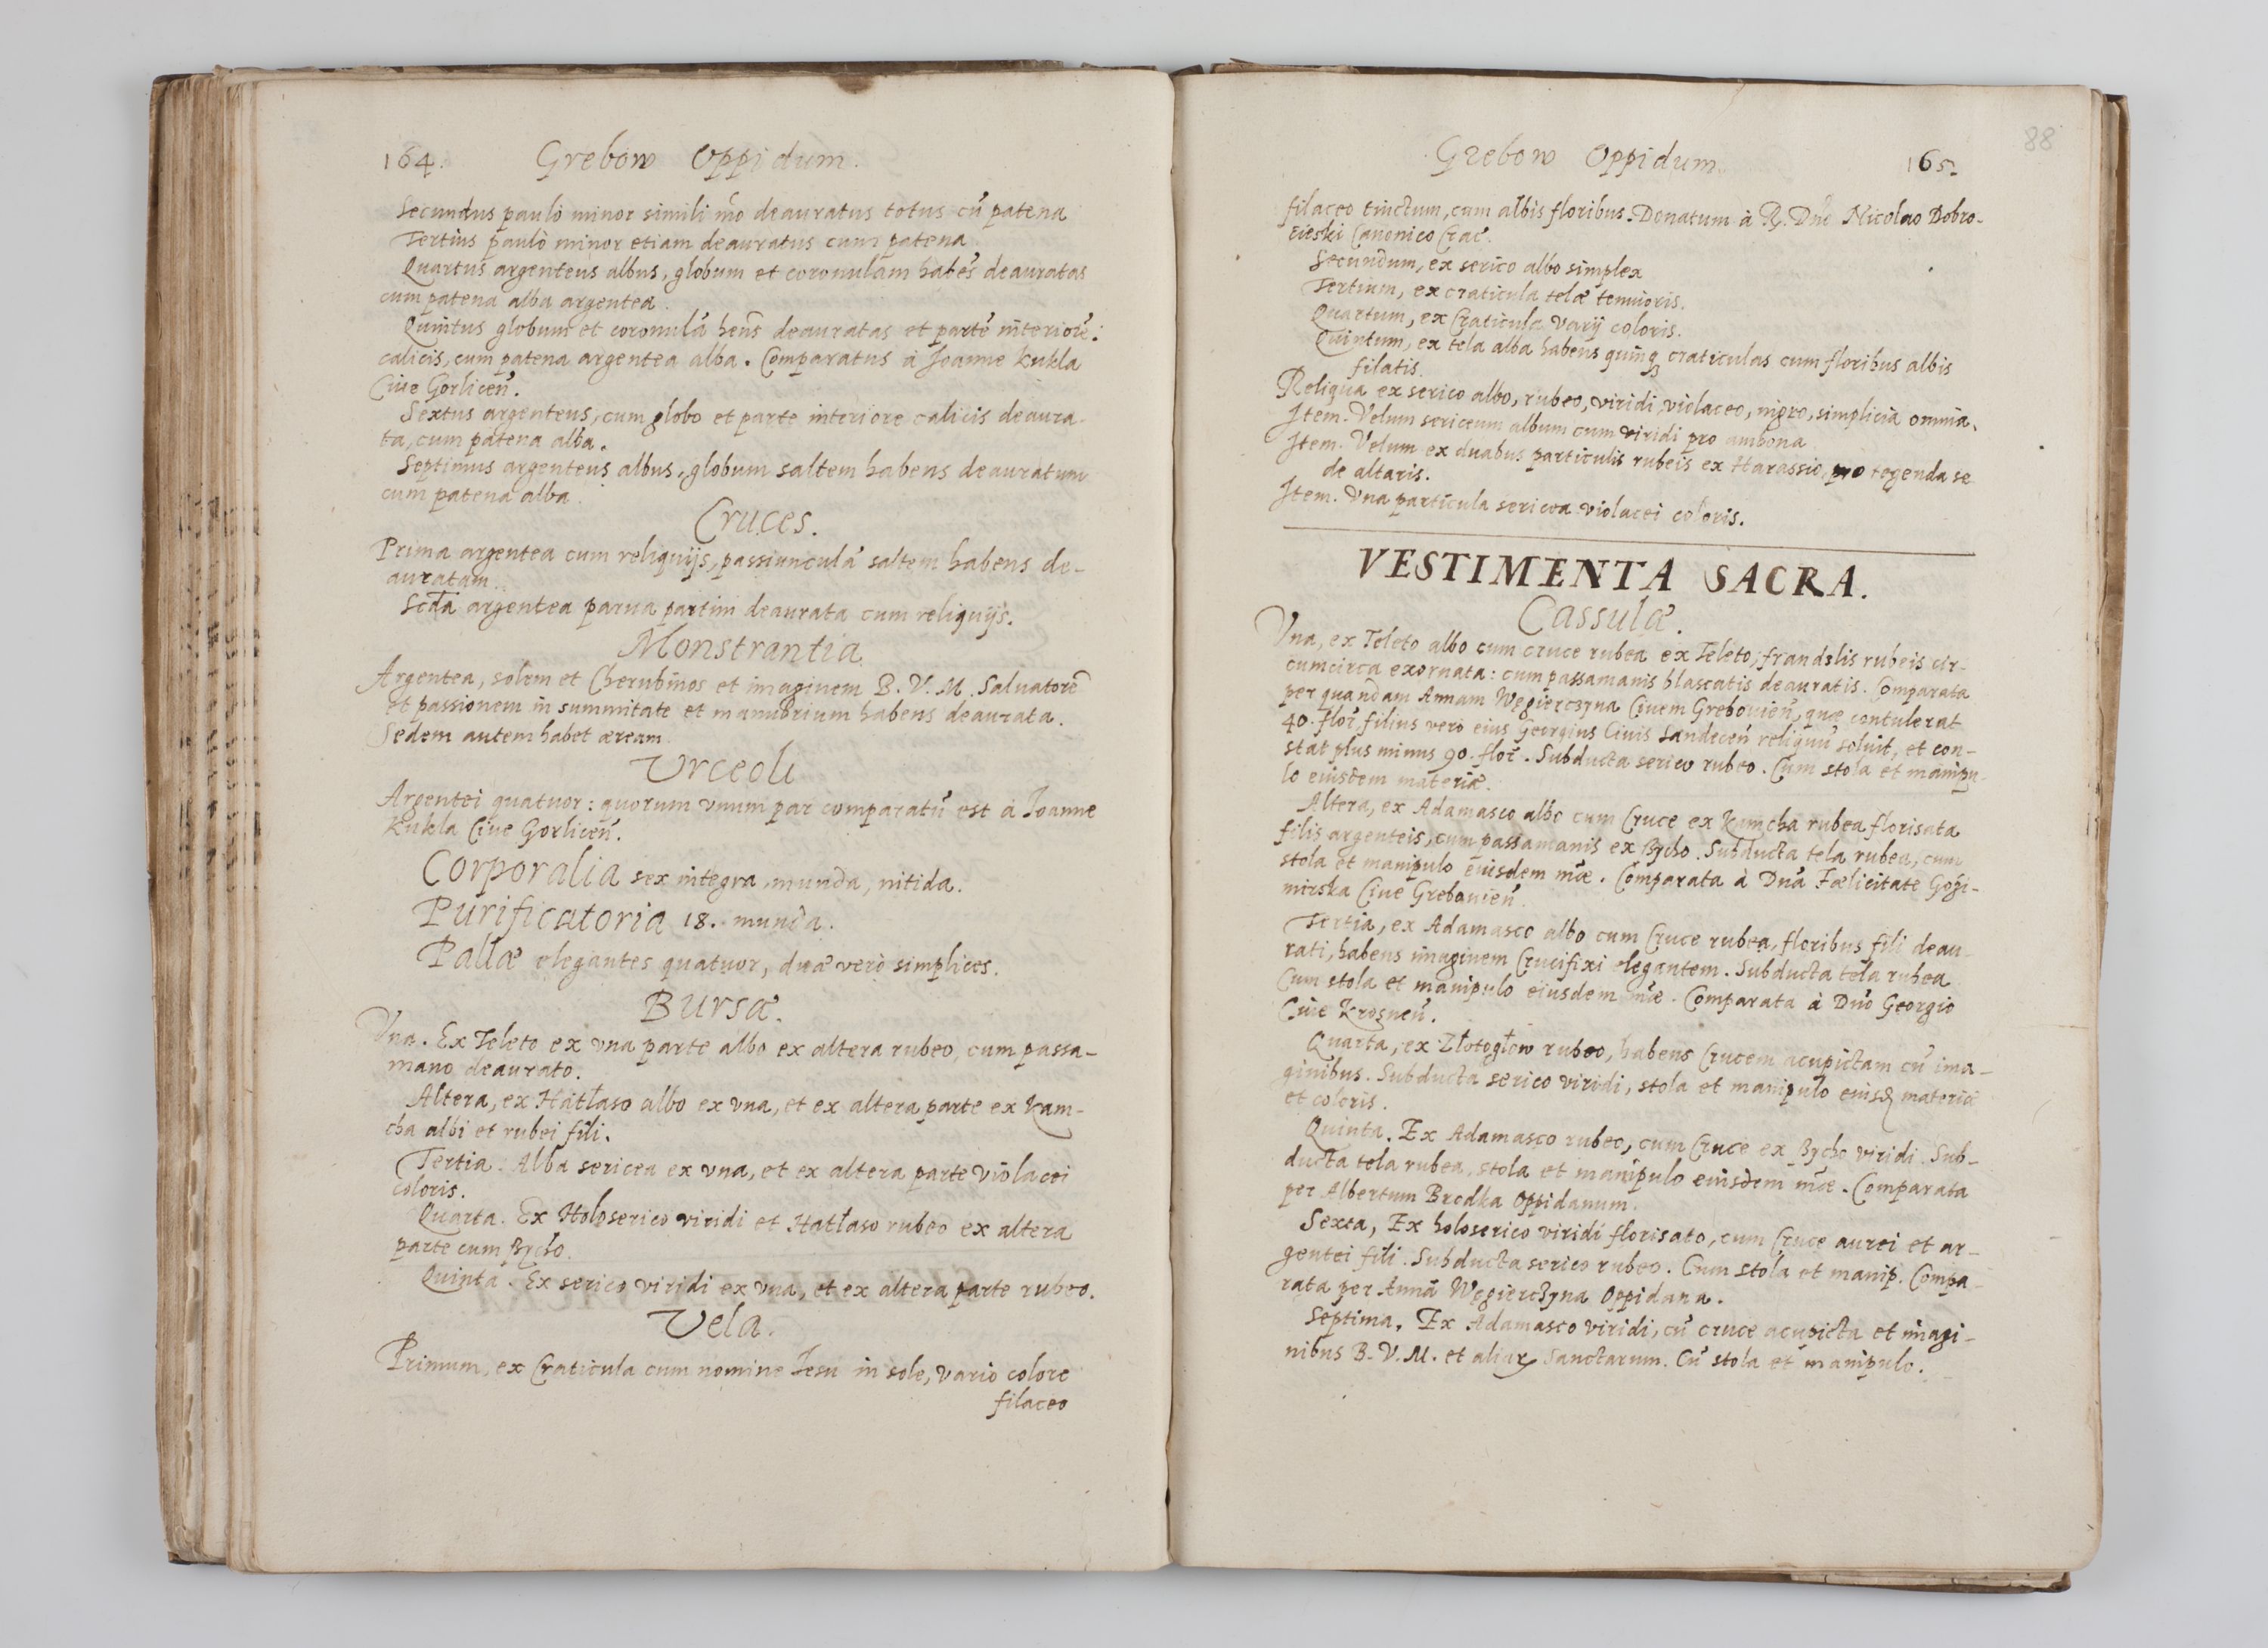 164. Grebow Oppidum.
Secundus paulò minor simili mo deauratus totus cū patena
Tertius paulò minor etiam deauratus cum patena
Quartus argenteus albus, globum et coronulam habēs deauratas
cum patena alba argentea.
Quintus globum et coronulā hens deauratas et partē interiorē
calicis, cum patena argentea alba. Comparatus à Joanne Kukla
Ciue Gorliceń.
Sextus argenteus, cum globo et parte interiore calicis deaura-
ta, cum patena alba.
Septimus argenteus albus, globum saltem habens deauratum
cum patena alba.
Cruces.
Prima argentea cum reliquijs, passiunculā saltem habens de-
auratam.
Scda argentea parua partim deaurata cum reliquijs.
Monstrantia
Argentea, solem et Cherubinos et imaginem B. V. M. Saluatorē
et passionem in summitate et manubrium habens deaurata.
Sedem autem habet æream
Urceoli
Argentei quatuor: quorum vnum par comparatū est à Joanne
Kukla Ciue Gorliceń.
Corporalia sex integra, munda, nitida.
Purificatoria 18. munda.
Pallæ elegantes quatuor, duæ verò simplices.
Bursæ.
Vna. Ex Teleto ex vna parte albo ex altera rubeo, cum passa-
mano deaurato.
Altera, ex Hatłaso albo ex vna, et ex altera parte ex Kam-
cha albi et rubei fili.
Tertia. Alba sericea ex vna, et ex altera parte violacei
coloris.
Quarta. Ex Holoserico viridi et Hatłaso rubeo ex altera
parte cum
Quinta. Ex serico viridi ex vna, et ex altera parte rubeo.
Vela.
Primum, ex Craticula cum nomine Jesu in sole, vario colore
filaceo
Grebow Oppidum. 165.
88
filaceo tinctum, cum albis floribus. Donatum à R. Dno Nicolao Dobro-
cieski Canonico Crac.
Secundum, ex serico albo simplex
Tertium, ex craticula telæ tenuioris.
Quartum, ex Craticula varij coloris.
Quintum, ex tela alba habens quinq craticulas cum floribus albis
filatis.
Reliqua ex serico albo, rubeo, viridi, violaceo, nigro, simplicia omnia.
Item. Velum sericeum album cum viridi pro ambona
Item. Velum ex duabus particulis rubeis ex Harassio, pro tegenda se
de altaris.
Item. Vna particula sericea violacei coloris.
VESTIMENTA SACRA.
Cassulæ.
Vna, ex Teleto albo cum cruce rubea ex Teleto, frandzlis rubeis cir-
cumcirca exornata: cum passamanis blascatis deauratis. Comparata
per quandam Annam Węgierczyna Ciuem Grebouień, quæ contulerat
40. flor filius verò eius Georgius Ciuis Sandeceń reliquū soluit, et con-
stat plus minus 90. flor. Subducta serico rubeo. Cum stola et manipu-
lo eiusdem materiæ.
Altera, ex Adamasco albo cum Cruce ex Kamcha rubea florisata
filis argenteis, cum passamanis ex . Subducta tela rubea, cum
stola et manipulo eiusdem mæ. Comparata à Dnā Fœlicitate
Ciue Grebouień.
Tertia, ex Adamasco albo cum Cruce rubea, floribus fili deau-
rati, habens imaginem Crucifixi elegantem. Subducta tela rubea
Cum stola et manipulo eiusdem mæ. Comparata à Dno Georgio
Ciue Krosneń.
Quarta, ex Złotogłow rubeo, habens Crucem acupictam cū ima-
ginibus. Subducta serico viridi, stola et manipulo eiusd materiæ
et coloris.
Quinta. Ex Adamasco rubeo, cum Cruce ex viridi. Sub-
ducta tela rubea, stola et manipulo eiusdem mæ. Comparata
per Albertum Brodka Oppidanum.
Sexta, Ex holoserico viridi florisato, cum Cruce aurei et ar-
gentei fili. Subducta serico rubeo. Cum stola et manip. Compa-
rata per Annā Węgierczyna Oppidana.
Septima. Ex Adamasco viridi, cū cruce acupicta et imagi-
nibus B. V. M. et aliaꝝ Sanctarum. Cū stola et manipulo.